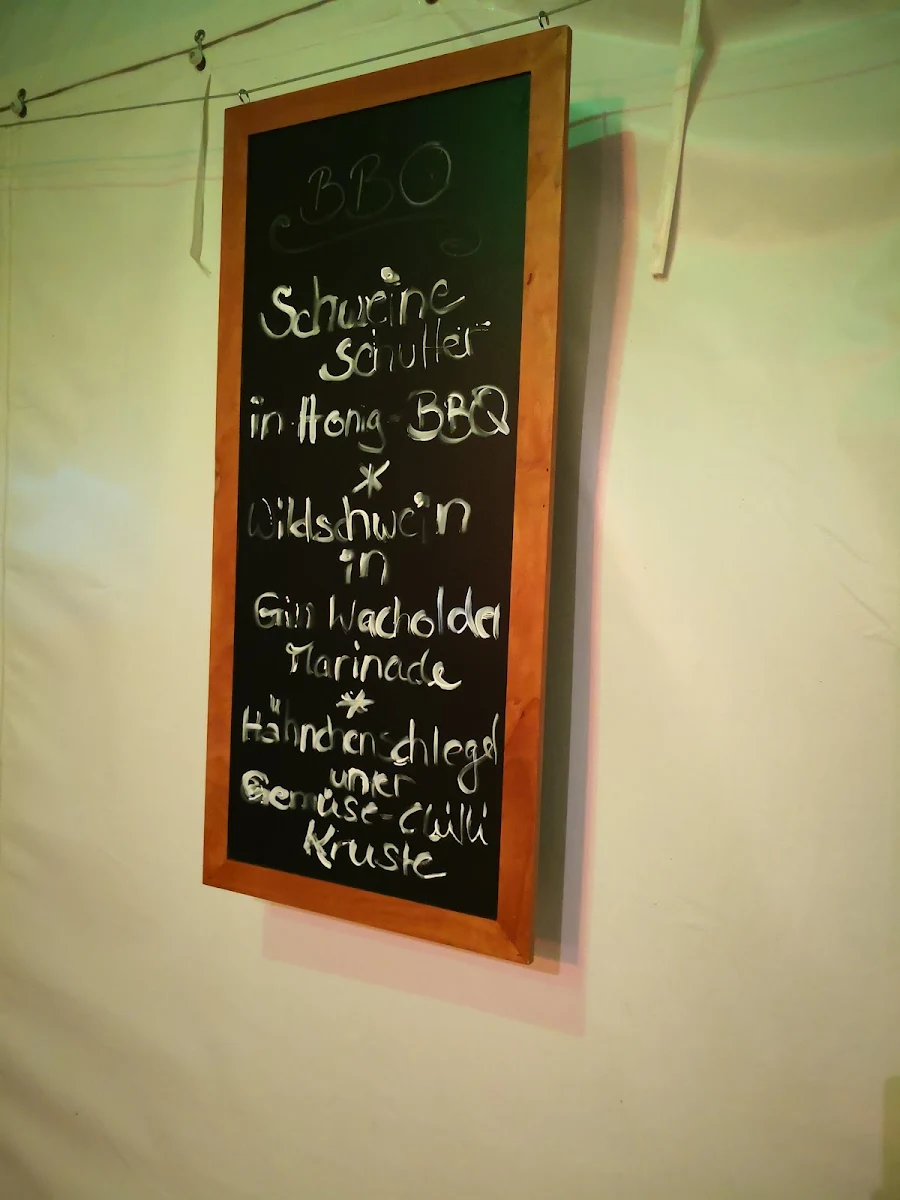 BBQ
Schweine
schulter
in Honig-BBQ
*
Wildschwein
in
Gin Wacholder
Marinade
*
Hähnchenschlegel
unter
Gemüse-Chilli
Kruste